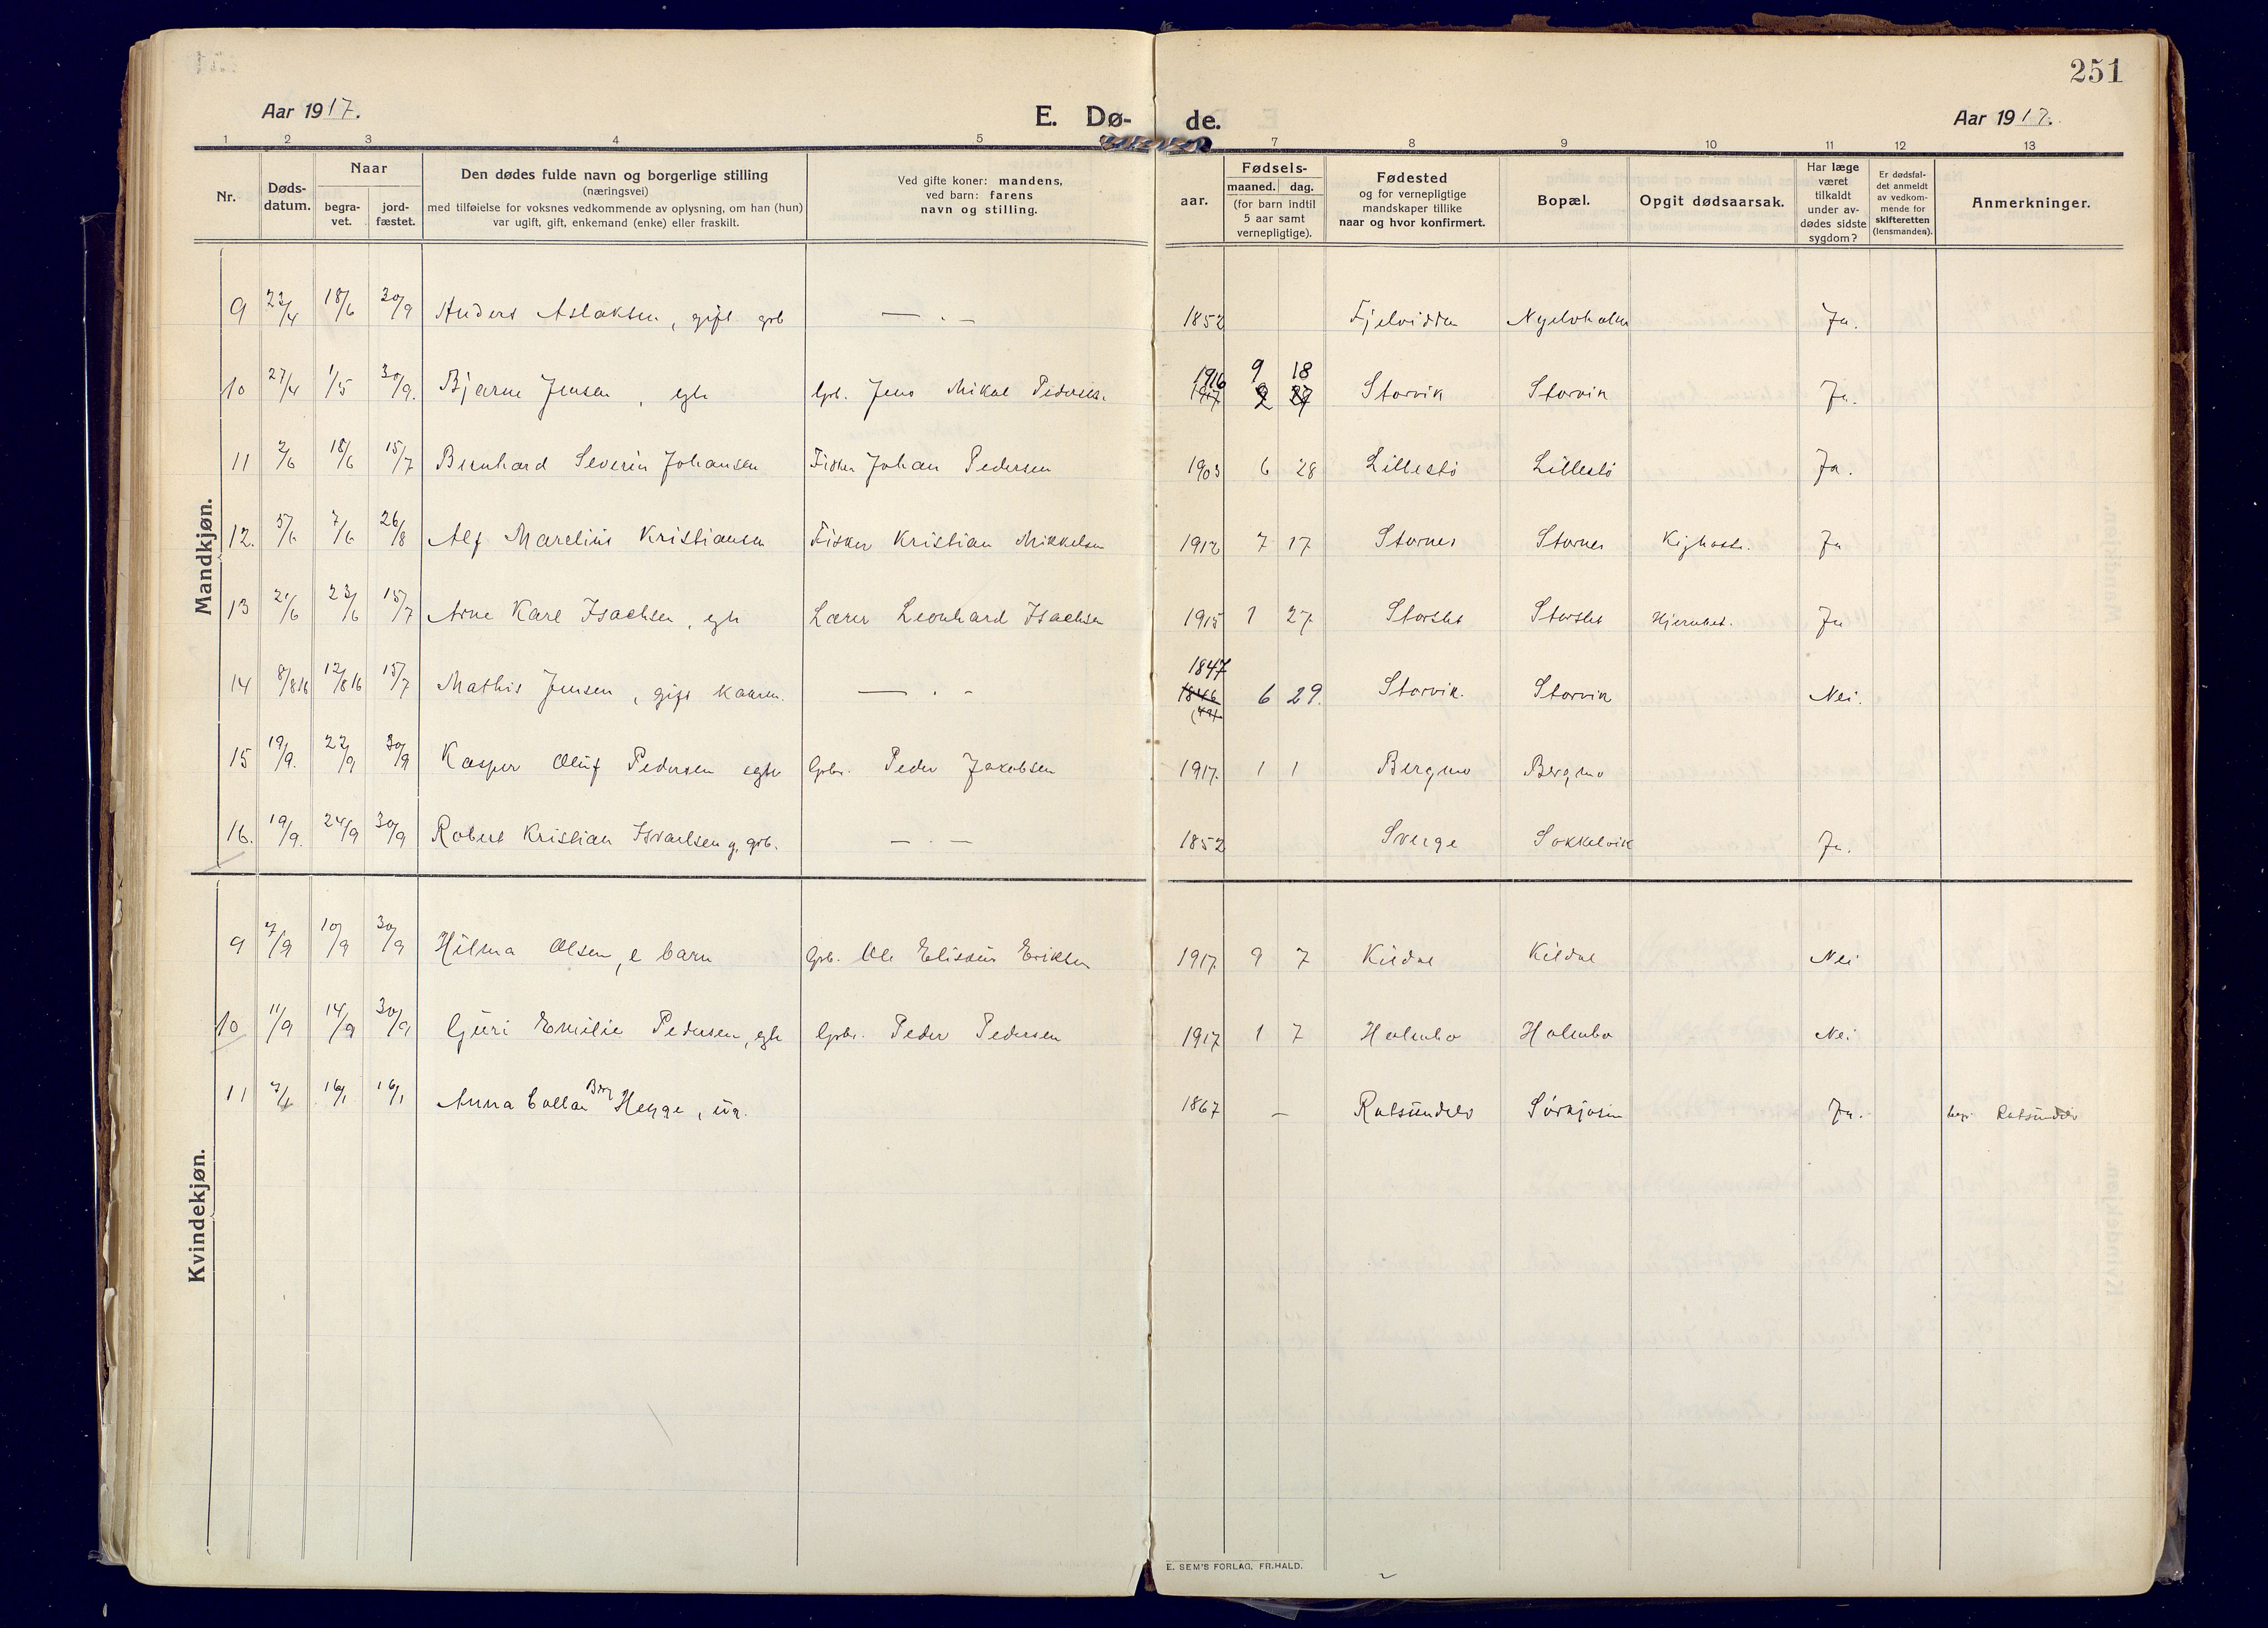 251
Aar 1917.
E. Dø-
de.
Aar 1917.
1 2 3 4 5 7 8 9 10 11 12 13
Nr.
Døds-
datum.
Naar
begra-
vet.
jord-
fæstet.
Den dødes fulde navn og borgerlige stilling
(næringsvei)
med tilføielse for voksnes vedkommende av oplysning, om han (hun)
var ugift, gift, enkemand (enke) eller fraskilt.
Ved gifte koner: mandens,
ved barn: farens
navn og stilling.
Fødsels-
aar.
maaned. dag.
(for barn indtil
5 aar samt
vernepligtige).
Fødested
og for vernepligtige
mandskaper tillike
naar og hvor konfirmert.
Bopæl.
Opgit dødsaarsak.
Har læge
været
tilkaldt
under av-
dødes sidste
sygdom?
Er dødsfal-
det anmeldt
av vedkom-
mende for
skifteretten
(lensmanden).
Anmerkninger.
Mandkjøn.
9 23/4 18/6 30/9 Anders Aslaksen, gift grb — . — 1852 Fjelvidda Nyelvholm Ja.
1916 9 18
10 27/4 1/5 30/9. Bjarne Jensen, egte Grb. Jens Mikal Pedersen. 1917 2 27 Storvik Storvik Ja.
11 2/6 18/6 15/7 Bernhard Severin Johansen Fisker Johan Pedersen 1903 6 28 Lilleslö Lilleslö Ja.
12. 5/6 7/6 26/8 Alf Marelius Kristiansen Fisker Kristian Mikkelsen 1912 7 17 Stornes Stornes Kighoste. Ja
13 21/6 23/6 15/7 Arne Karl Isachsen, egte Lærer Leonhard Isachsen 1915 1 27 Storslet Storslet Hjernebet. Ja
1847
14 8/8 16 12/8 16 15/7 Mathis Jensen, gift kaarm. — . - 1846 6 29. Storvik. Storvik Nei.
15 19/9. 22/9 30/9 Kasper Oluf Pedersen egte Grbr. Peder Jakobsen 1917. 1 1 Bergmo Bergmo
16. 19/9. 24/9 30/9 Robert Kristian Israelsen g. grb. — . — 1852 Sverge Sokkelvik Ja.
Kvindekjøn.
9 7/9 10/9 30/9 Hilma Olsen, e barn Grb. Ole Elisæus Eriksen 1917. 9 7 Kildal Kildal Nei
10 11/9 14/9 30/9 Guri Emilie Pedersen, egte Grbr. Peder Pedersen 1917 1 7 Holmbo Holmbo Nei
11 7/1 16/1 16/1 Anna Collar Berg Hegge, ug. 1867 — Rotsundelv Sørkjosen Ja. begr. Rotsundelv
E. SEM'S FORLAG, FR.HALD.